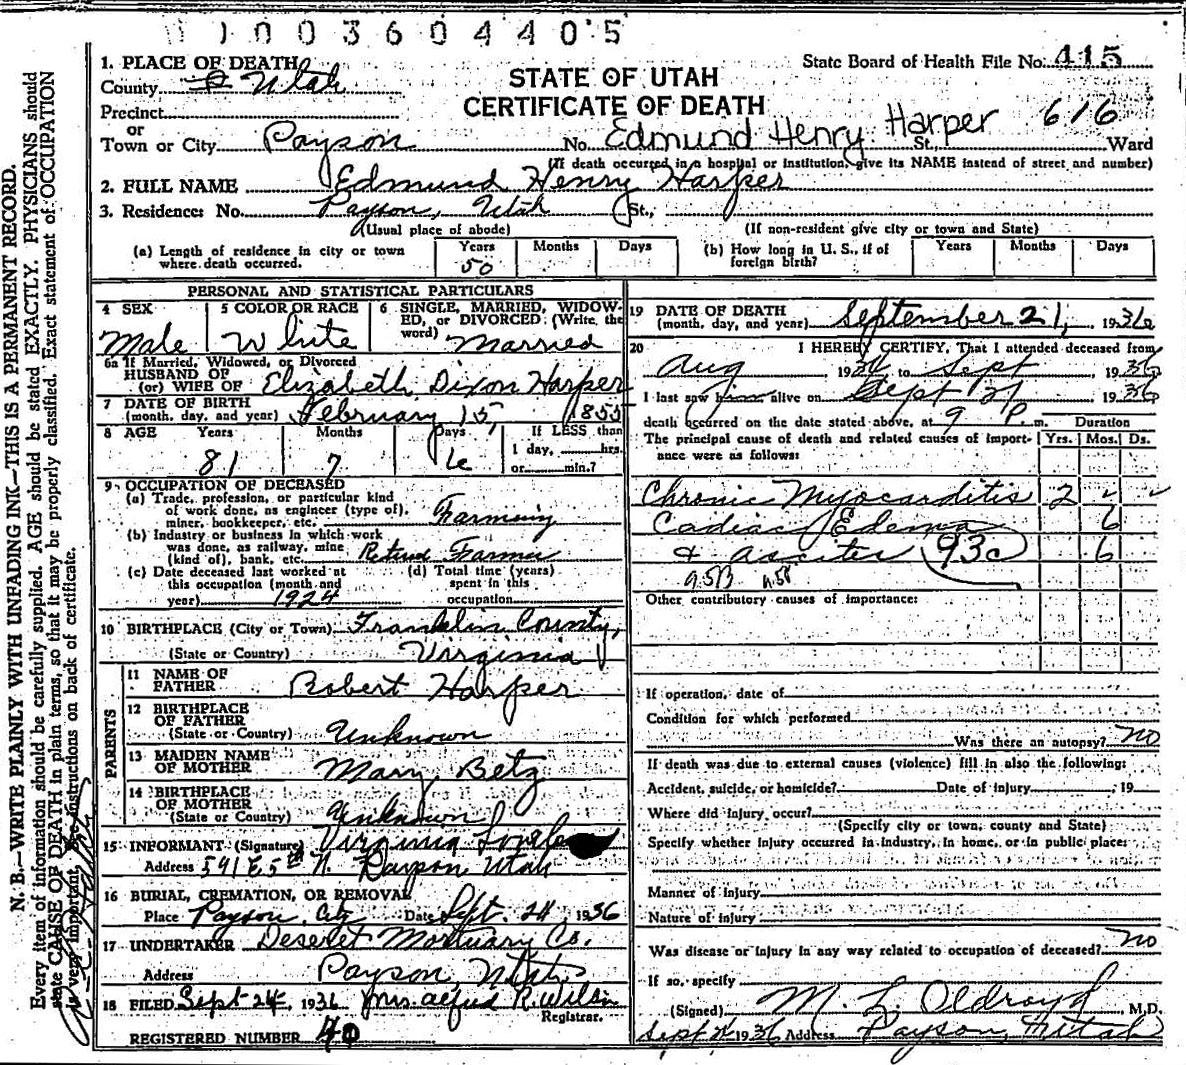 1003604405
1. PLACE OF DEATH
State Board of Health File No. 415
County Utah
STATE OF UTAH
Precinct
CERTIFICATE OF DEATH
or
Town or City Payson No. Edmund Henry Harper St., 616 Ward
(If death occurred in a hospital or institution, give its NAME instead of street and number)
2. FULL NAME Edmund Henry Harper
3. Residence: No. Payson, Utah St.,
(Usual place of abode) (If non-resident give city or town and State)
(a) Length of residence in city or town where death occurred. Years 50 Months Days
(b) How long in U. S., if of foreign birth? Years Months Days
PERSONAL AND STATISTICAL PARTICULARS
4 SEX Male
5 COLOR OR RACE White
6 SINGLE, MARRIED, WIDOWED, or DIVORCED: (Write the word) Married
6a If Married, Widowed, or Divorced
HUSBAND OF
(or) WIFE OF Elizabeth Dixon Harper
7 DATE OF BIRTH
(month, day, and year) February 15, 1855
8 AGE Years 81 Months 7 Days 6 If LESS than
1 day, hrs.
or min.?
9 OCCUPATION OF DECEASED
(a) Trade, profession, or particular kind
of work done, as engineer (type of),
miner, bookkeeper, etc. Farming
(b) Industry or business in which work
was done, as railway, mine
(kind of), bank, etc. Retired Farmer
(c) Date deceased last worked at
this occupation (month and
year) 1924
(d) Total time (years)
spent in this
occupation
10 BIRTHPLACE (City or Town) Franklin County,
(State or Country) Virginia
PARENTS
11 NAME OF
FATHER Robert Harper
12 BIRTHPLACE
OF FATHER
(State or Country) Unknown
13 MAIDEN NAME
OF MOTHER Mary Betz
14 BIRTHPLACE
OF MOTHER
(State or Country) Unknown
15 INFORMANT (Signature) Virginia
Address 591 E 5th N. Payson Utah
16 BURIAL, CREMATION, OR REMOVAL
Place Payson City Date Sept. 24, 1936
17 UNDERTAKER Deseret Mortuary Co.
Address Payson, Utah
18 FILED Sept 24, 1936 Mrs. Alfred R. Wilson
Registrar.
REGISTERED NUMBER 40
19 DATE OF DEATH
(month, day, and year) September 21, 1936
20 I HEREBY CERTIFY, That I attended deceased from
Aug 1934, to Sept, 1936
I last saw him alive on Sept 21 1936
death occurred on the date stated above, at 9 P. m. Duration
The principal cause of death and related causes of importance were as follows: Yrs. Mos. Ds.
Chronic Myocarditis 2 - -
Cadiac Edema 6
& Ascites 93c 6
95B
Other contributory causes of importance:
If operation, date of
Condition for which performed
Was there an autopsy? no
If death was due to external causes (violence) fill in also the following:
Accident, suicide, or homicide? Date of injury , 19
Where did injury occur?
(Specify city or town, county and State)
Specify whether injury occurred in industry, in home, or in public place:
Manner of injury
Nature of injury
Was disease or injury in any way related to occupation of deceased? no
If so, specify
(Signed) M. L. Oldroyd, M.D.
1936 Address Payson, Utah
N. B.—WRITE PLAINLY WITH UNFADING INK—THIS IS A PERMANENT RECORD.
Every item of information should be carefully supplied. AGE should be stated EXACTLY. PHYSICIANS should
state CAUSE OF DEATH in plain terms, so that it may be properly classified. Exact statement of OCCUPATION
is very important. See instructions on back of certificate.